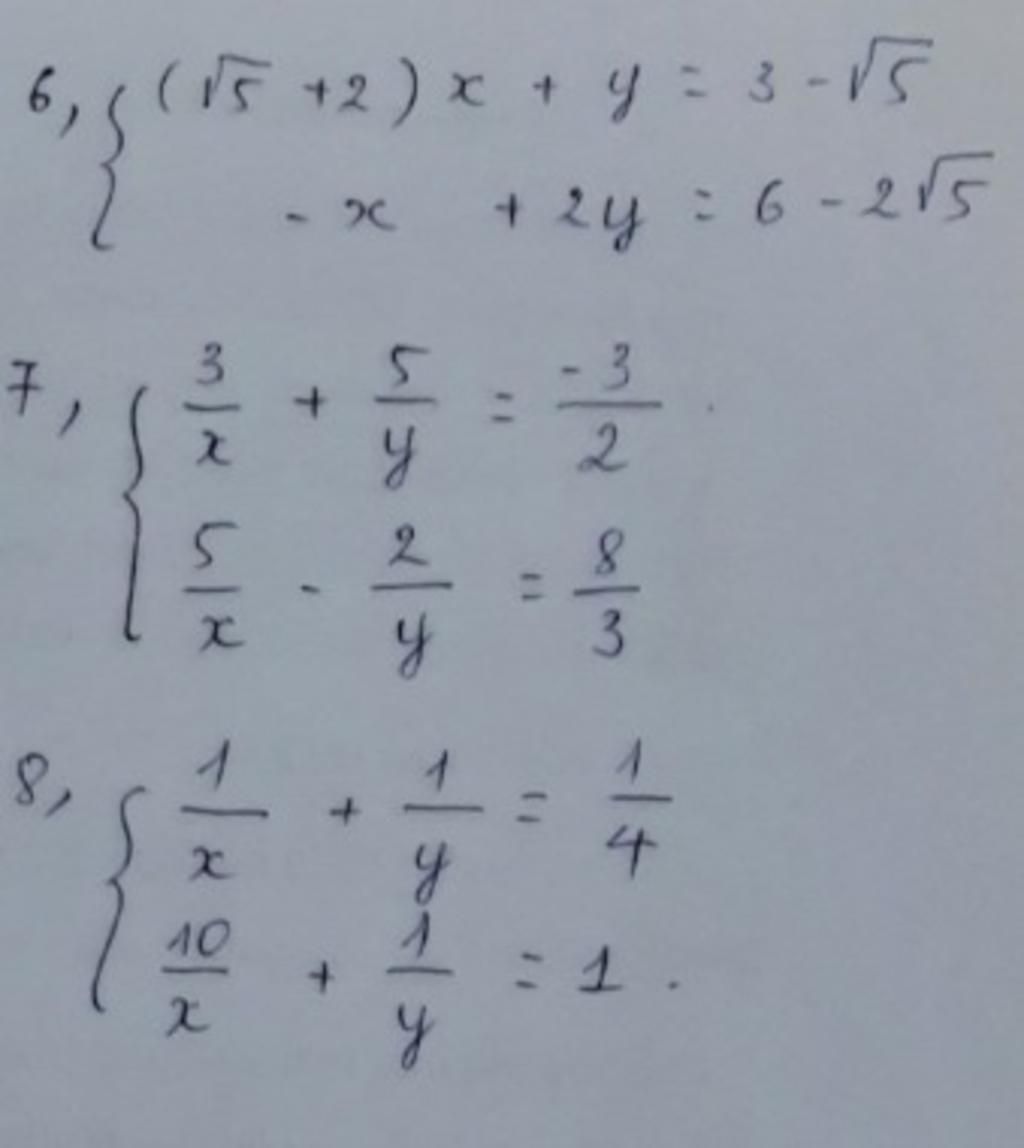 6, { (√5 + 2) x + y = 3 - √5
- x + 2y = 6 - 2√5
7, { 3/x + 5/y = -3/2 .
5/x - 2/y = 8/3
8, { 1/x + 1/y = 1/4
10/x + 1/y = 1 .